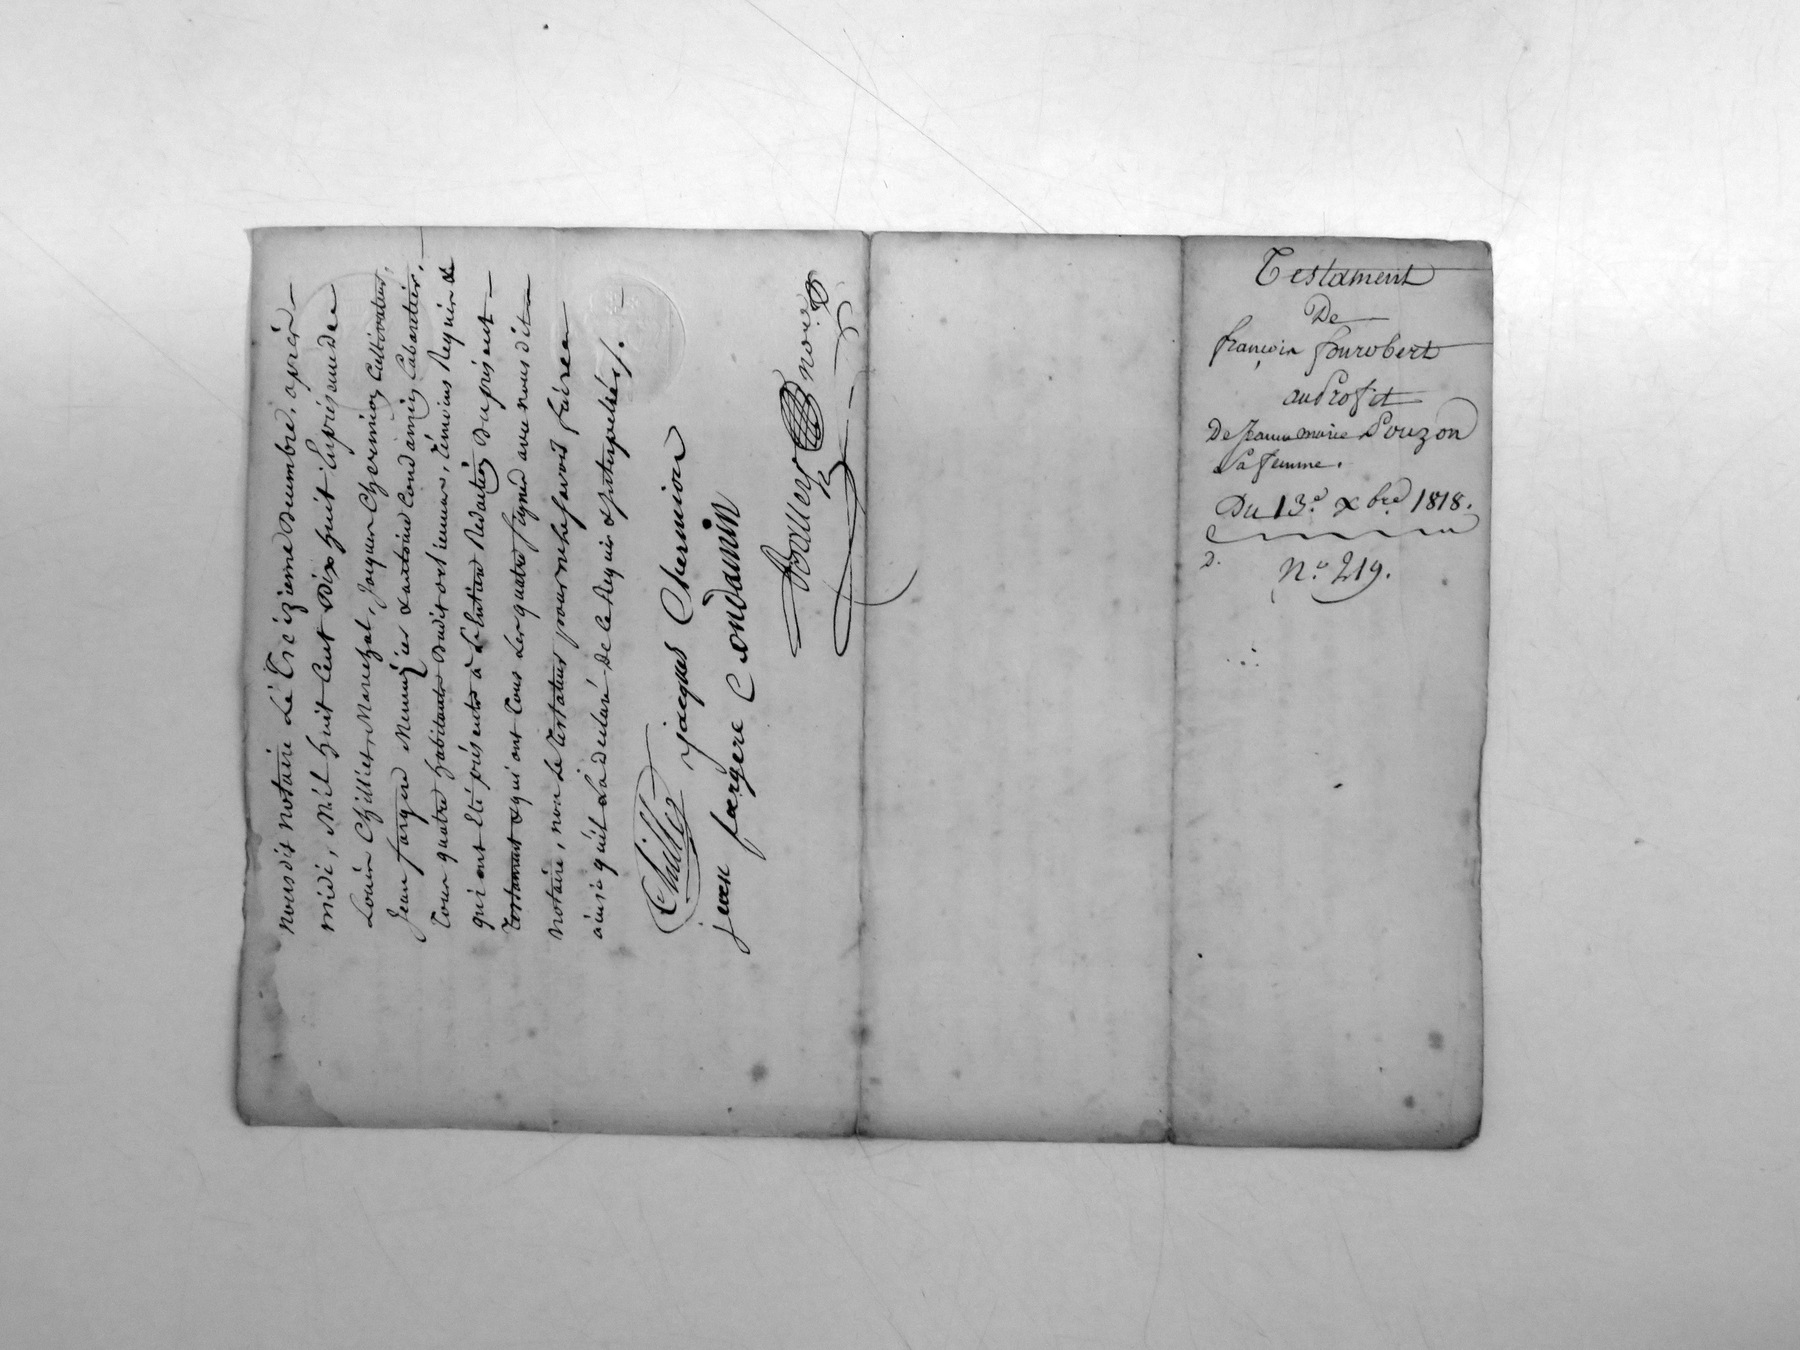 nous dit notaire Le Treizieme Decembre, après
midi, Mil huit Cent Dix huit En présence de
Louis Chilliet, Marechal, Jacques Chermion Cultivateur,
Jean fargere Menuzier & antoine Condamin Cabaretier,
Tous quatre habitants Dudit, Témoins Requis &
qui ont Eté présents à L'Entiere Redaction Du présent
Testament & qui ont Tous Les quatre signé avec nous dit
notaire, non Le Testateur pour ne le savoir faire
ainsi qu'il L'a declaré de Ce Requis & Interpellés.
Chillie jacques Chermion
jean fargere Condamin
nore
Testament
De
françois fourobert
au Profit
De Jeanne marie Pouzon
Sa femme.
Du 13.e Xbre 1818.
D.
N.o 219.